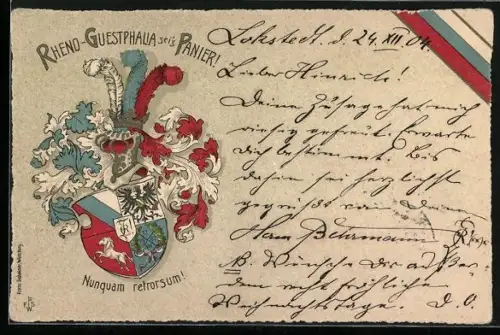 RHENO-GUESTPHALIA sei's PANIER!
Nunquam retrorsum!
Lokstedt, d. 24. XII. 04.
Lieber Hinrich!
Deine Zusage hat mich
riesig gefreut. Erwarte
Dich bestimmt. Bis
dahin sei herzlichst
gegrüßt von Dein
Hans Behrmann
NB. Wünsche Dir außer
dem recht fröhliche
Weihnachtstage. D. O.